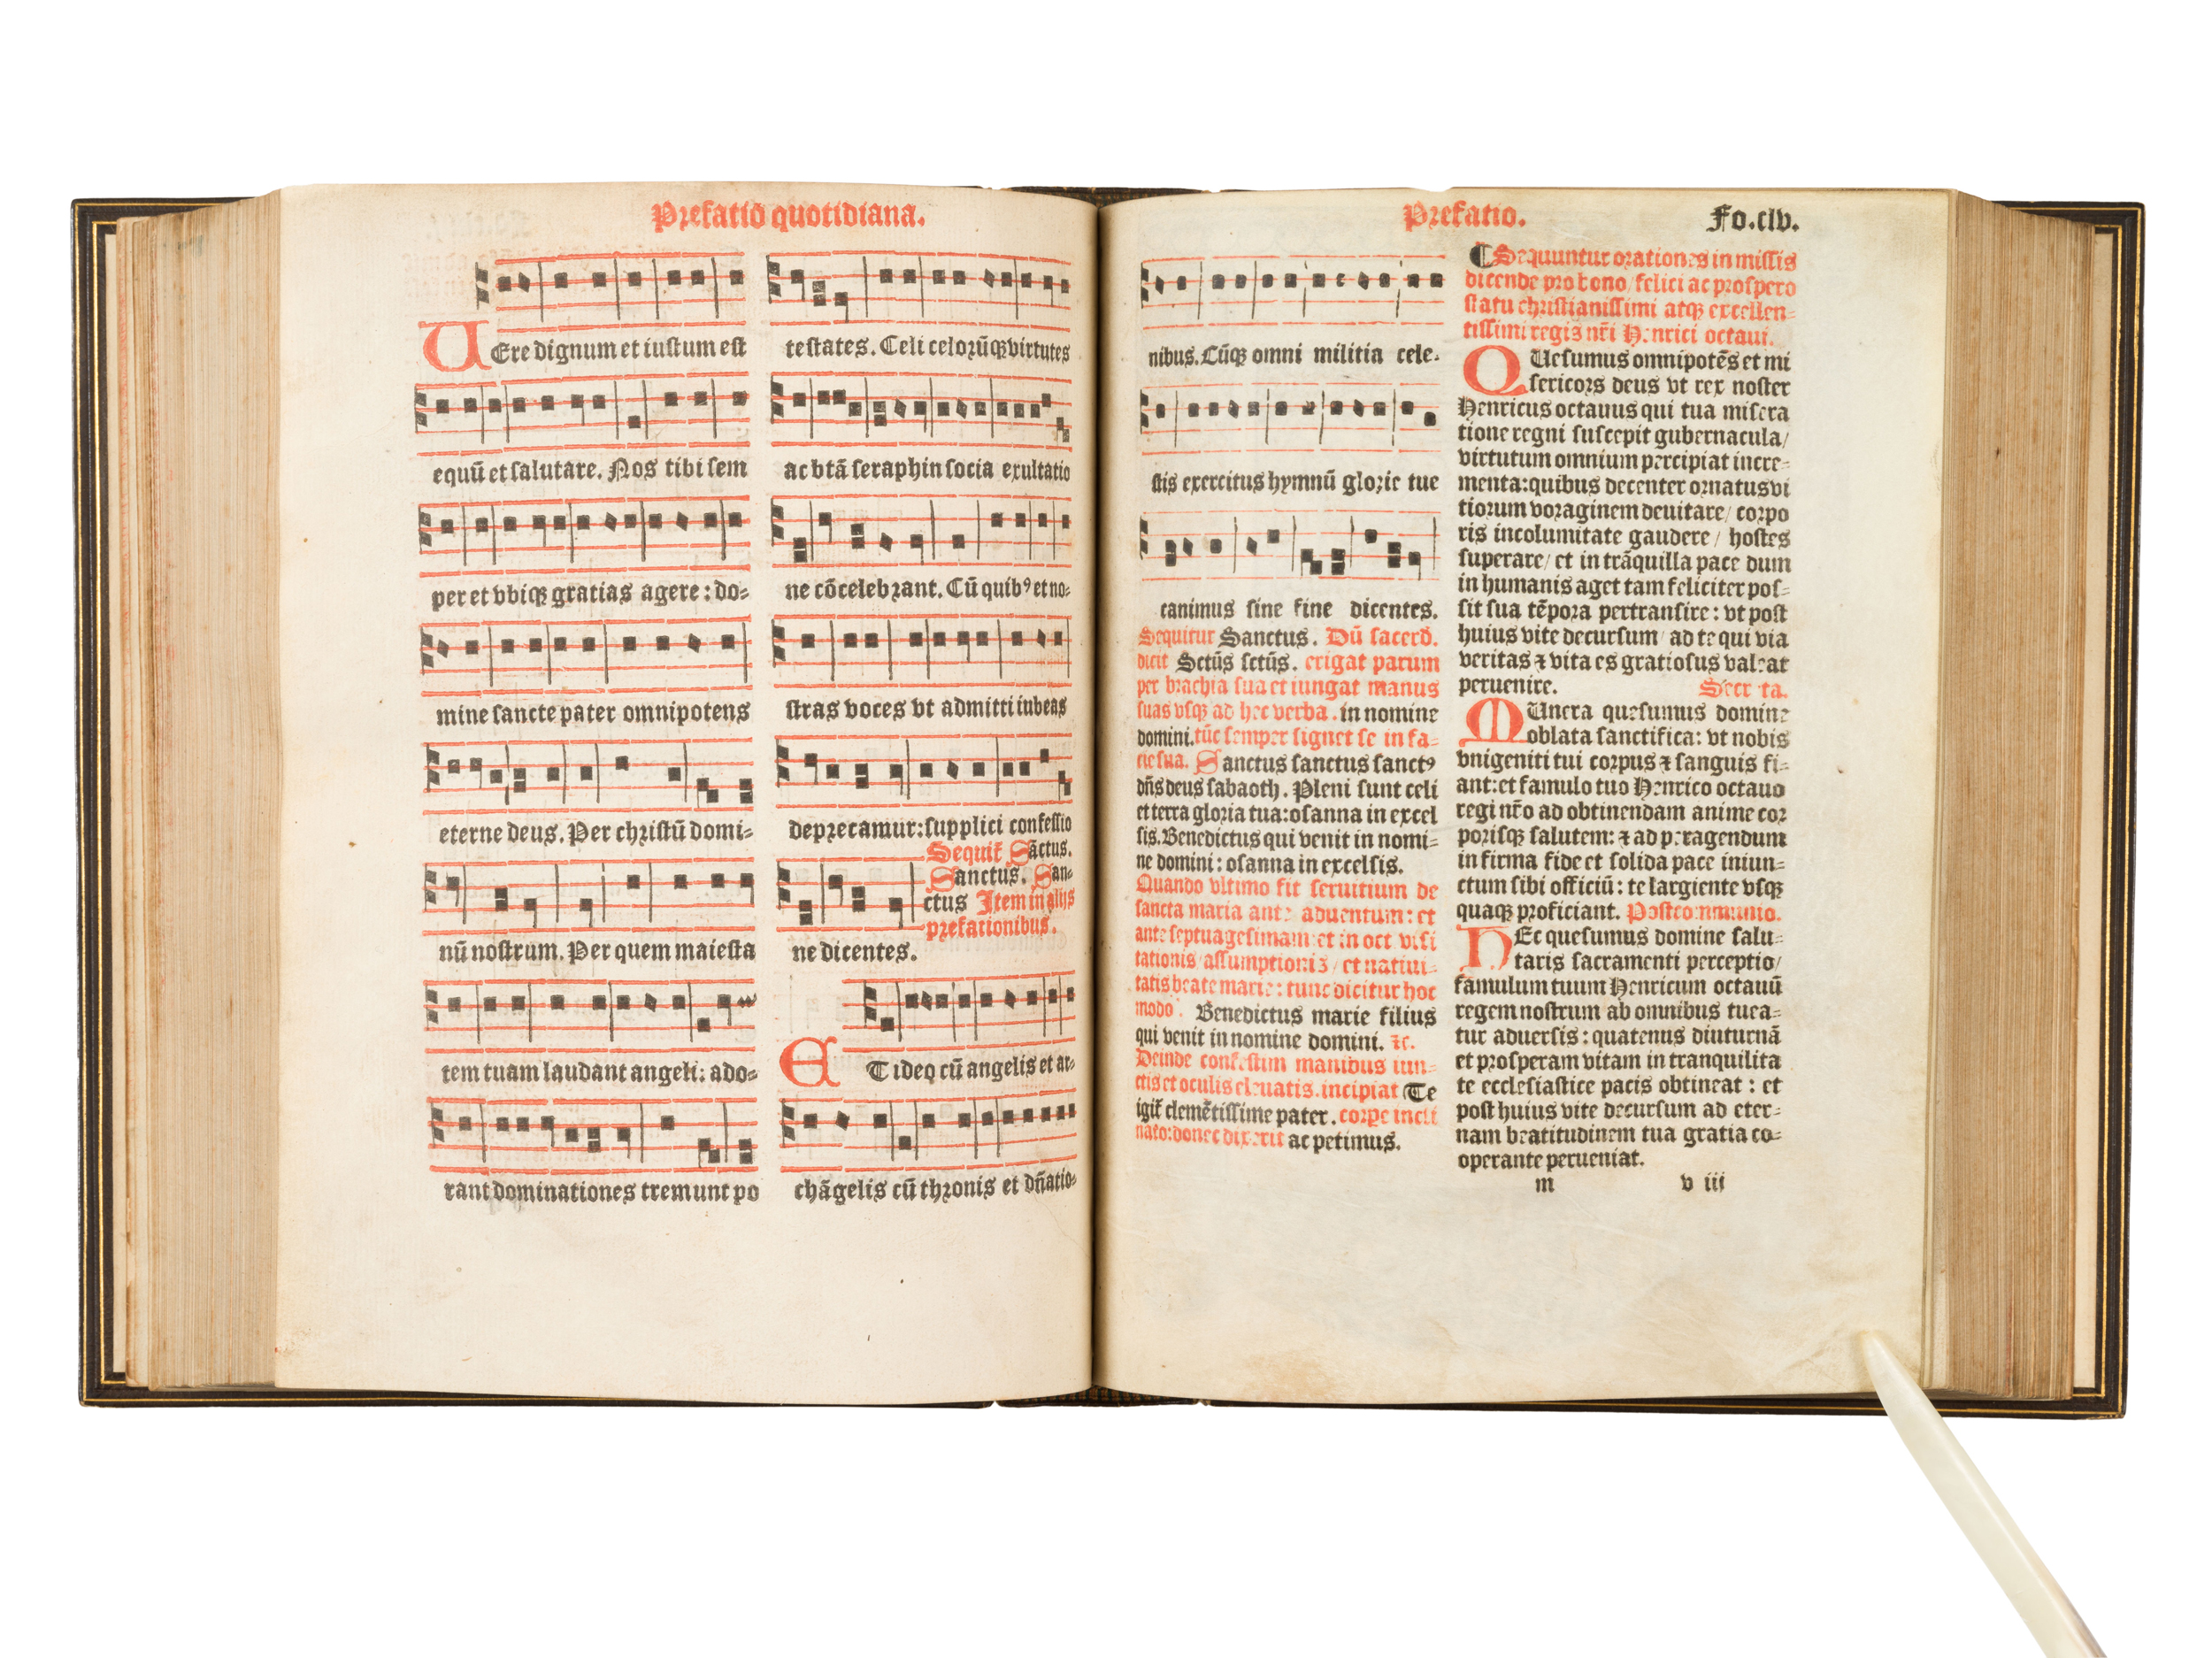 Prefatio quotidiana.
UEre dignum et iustum est
equū et salutare. Nos tibi sem
per et vbiqꝫ gratias agere : do-
mine sancte pater omnipotens
eterne deus. Per christū domi-
nū nostrum. Per quem maiesta
tem tuam laudant angeli: ado-
rant dominationes tremunt po
testates. Celi celorūqꝫ virtutes
ac btā seraphin socia exultatio
ne cōcelebrant. Cū quibꝰ et no-
stras voces vt admitti iubeas
deprecamur: supplici confessio
Sequit̄ Sāctus.
Sanctus. San-
ctus Item in alijs
prefationibus.
ne dicentes.
ET ideo cū angelis et ar-
chāgelis cū thronis et dn̄atio-
Prefatio. Fo.clv.
nibus. Cūqꝫ omni militia cele-
stis exercitus hymnū glorie tue
canimus sine fine dicentes.
Sequitur Sanctus. Dū sacerd.
dicit Sctūs sctūs. erigat parum
per brachia sua et iungat manus
suas vsqꝫ ad hec verba. in nomine
domini. tūc semper signet se in fa-
cie sua. Sanctus sanctus sanctꝰ
dn̄s deus sabaoth. Pleni sunt celi
et terra gloria tua: osanna in excel
sis. Benedictus qui venit in nomi-
ne domini : osanna in excelsis.
Quando vltimo fit seruitium de
sancta maria ante aduentum: et
ante septuagesimam: et in oct visi
tationis/ assumptionis/ et natiui-
tatis beate marie: tunc dicitur hoc
modo. Benedictus marie filius
qui venit in nomine domini. ⁊c.
Deinde confestim manibus iun-
ctis et oculis eleuatis. incipiat Te
igit̄ clemētissime pater. corpe incli
nato: donec dixerit ac petimus.
¶ Sequuntur orationes in missis
dicende pro bono/ felici ac prospero
statu christianissimi atqꝫ excellen-
tissimi regis nr̄i Henrici octaui.
QUesumus omnipotēs et mi
sericors deus vt rex noster
Henricus octauus qui tua misera
tione regni suscepit gubernacula/
virtutum omnium percipiat incre-
menta: quibus decenter ornatus vi
tiorum voraginem deuitare/ corpo
ris incolumitate gaudere/ hostes
superare/ et in trāquilla pace dum
in humanis aget tam feliciter pos-
sit sua tēpora pertransire : vt post
huius vite decursum/ ad te qui via
veritas ⁊ vita es gratiosus valeat
peruenire. Secreta.
MUnera quesumus domine
oblata sanctifica: vt nobis
vnigeniti tui corpus ⁊ sanguis fi-
ant: et famulo tuo Henrico octauo
regi nr̄o ad obtinendam anime cor
porisqꝫ salutem: ⁊ ad peragendum
in firma fide et solida pace iniun-
ctum sibi officiū : te largiente vsqꝫ
quaqꝫ proficiant. Postcommunio.
HEc quesumus domine salu-
taris sacramenti perceptio/
famulum tuum Henricum octauū
regem nostrum ab omnibus tuea-
tur aduersis : quatenus diuturnā
et prosperam vitam in tranquilita
te ecclesiastice pacis obtineat : et
post huius vite decursum ad eter-
nam beatitudinem tua gratia co-
operante perueniat.
m v iii